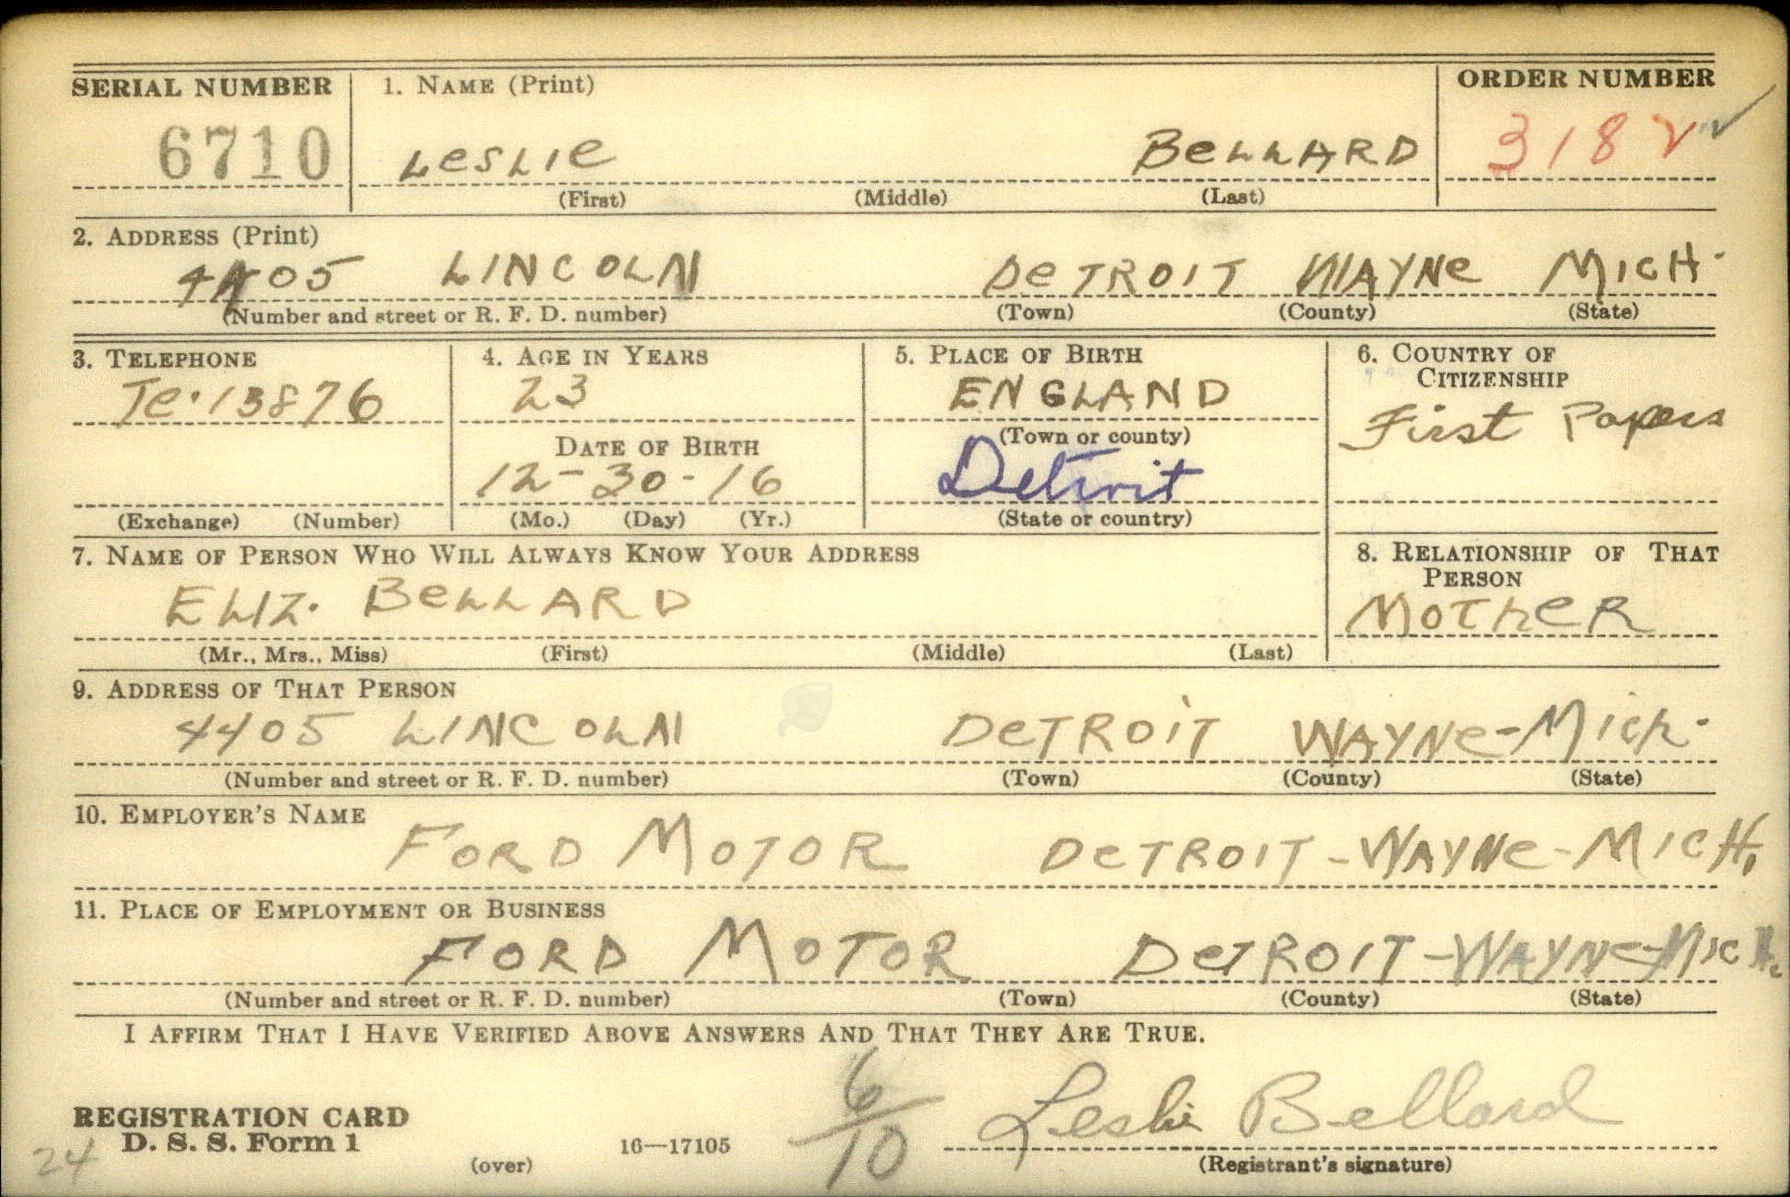 SERIAL NUMBER 1. NAME (Print) ORDER NUMBER
6710 LESLIE BELLARD 3182
(First) (Middle) (Last)
2. ADDRESS (Print)
4405 LINCOLN DETROIT WAYNE MICH.
(Number and street or R. F. D. number) (Town) (County) (State)
3. TELEPHONE 4. AGE IN YEARS 5. PLACE OF BIRTH 6. COUNTRY OF CITIZENSHIP
Te. 13876 23 ENGLAND First Papers
(Town or county)
DATE OF BIRTH
12-30-16 Detroit
(Exchange) (Number) (Mo.) (Day) (Yr.) (State or country)
7. NAME OF PERSON WHO WILL ALWAYS KNOW YOUR ADDRESS 8. RELATIONSHIP OF THAT PERSON
ELIZ. BELLARD MOTHER
(Mr., Mrs., Miss) (First) (Middle) (Last)
9. ADDRESS OF THAT PERSON
4405 LINCOLN DETROIT WAYNE-MICH.
(Number and street or R. F. D. number) (Town) (County) (State)
10. EMPLOYER'S NAME
FORD MOTOR DETROIT-WAYNE-MICH.
11. PLACE OF EMPLOYMENT OR BUSINESS
FORD MOTOR DETROIT-WAYNE-MICH.
(Number and street or R. F. D. number) (Town) (County) (State)
I AFFIRM THAT I HAVE VERIFIED ABOVE ANSWERS AND THAT THEY ARE TRUE.
6/10 Leslie Bellard
REGISTRATION CARD
D. S. S. Form 1 16—17105
24 (over) (Registrant's signature)